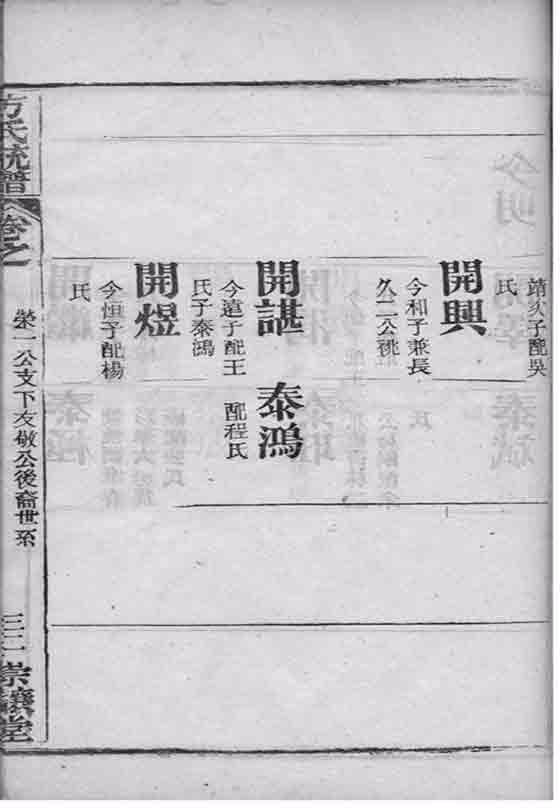 靖久子配吳
氏
開興
今和子兼長
久二公祧
開諶
今遠子配王
氏子泰鴻
泰鴻
配程氏
開煜
今恒子配楊
氏
方氏統譜
卷之
榮一公支下友敬公後裔世系
三二
崇讓堂